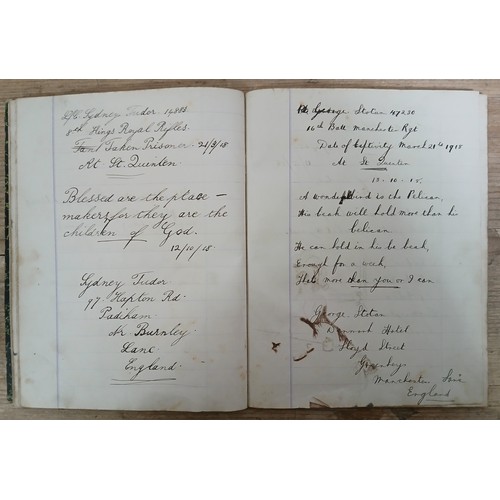 Pte Sydney Tudor. 14888
8th Kings Royal Rifles.
Taken Prisoner 21/3/18
At St. Quinten
Blessed are the peace-
makers for they are the
children of God.
12/10/18
Sydney Tudor
97 Hapton Rd.
Padiham
Nr Burnley
Lanc
England
Pte George Stotan 47230
16th Batt Manchester Rgt
Date of Captivity March 21st 1918
At St Quinten
12-10-18.
A wonderful bird is the Pelican,
His beak will hold more than his
belican.
He can hold in his beak,
Enough for a week,
That's more than you or I can
George Stotan
Hotel
Lloyd Street
Greenheys
Manchester
England